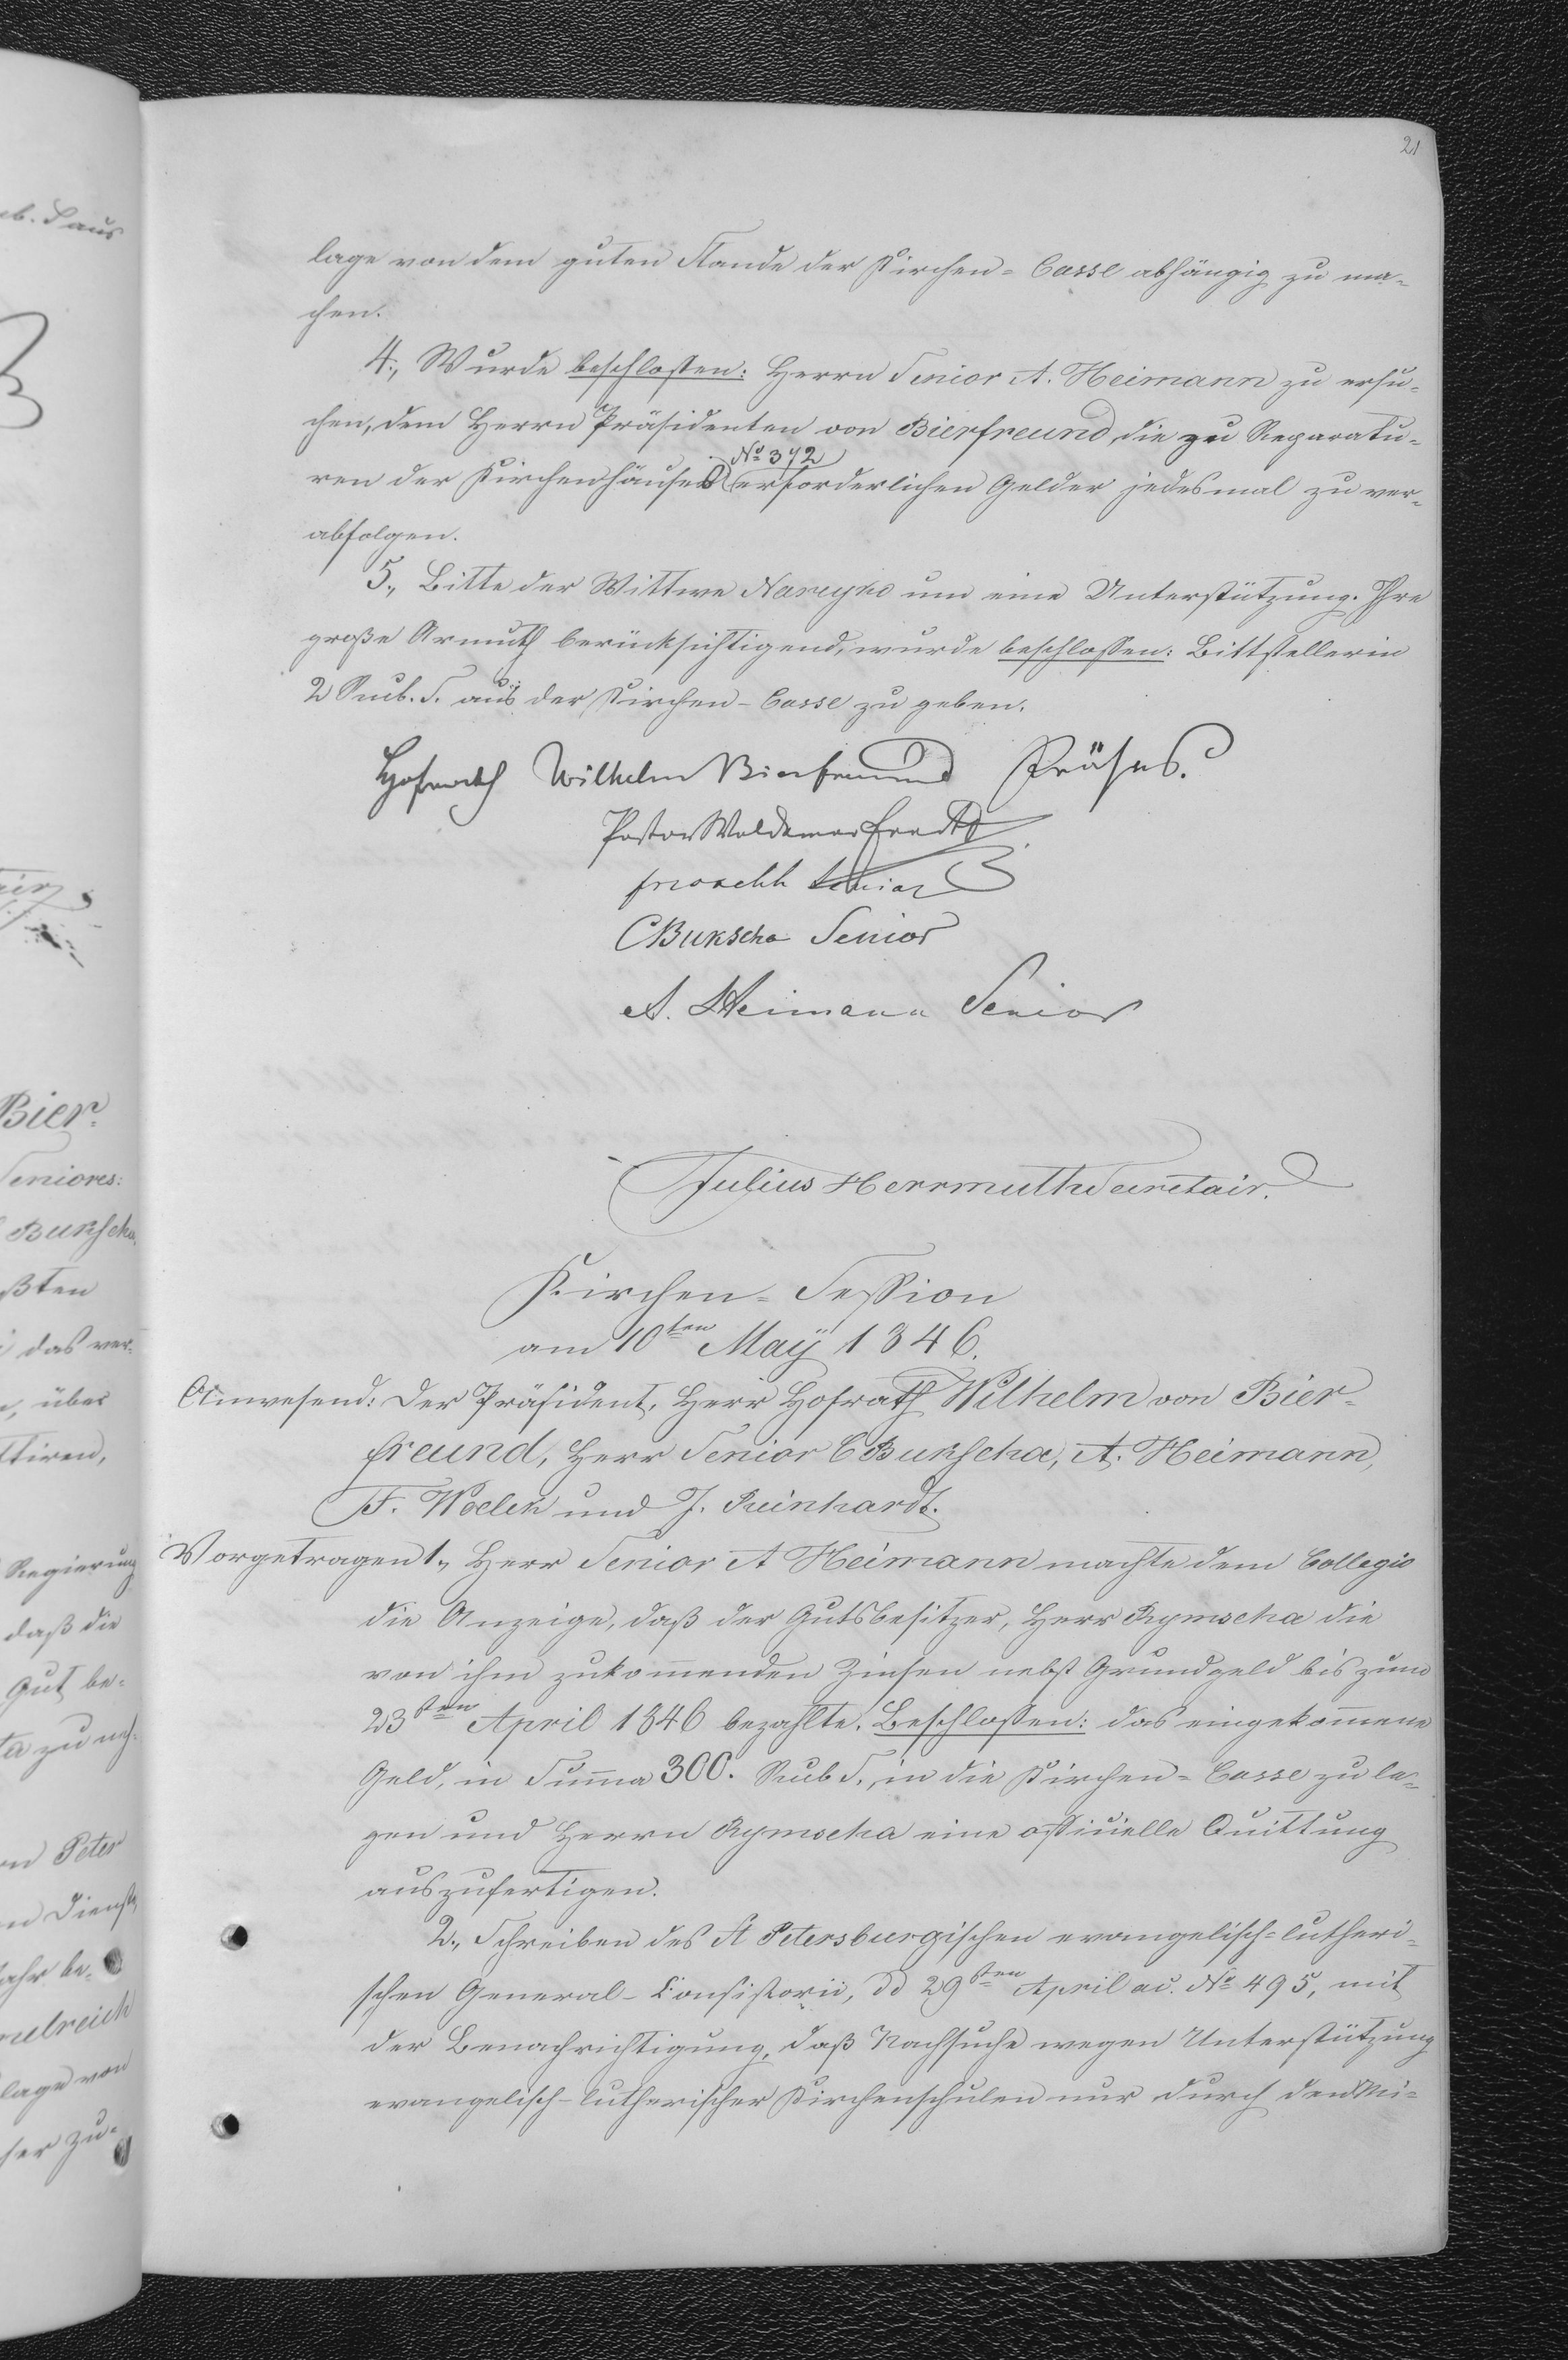 21
lage von dem guten Stande der Kirchen-Casse abhängig zu ma-
chen.
4., Wurde beschlossen: Herrn Senior A. Heimann zu ersu-
chen, dem Herrn Präsidenten von Bierfreund, die zu Reparatu-
No 372
ren der Kirchenhäuser erforderlichen Gelder jedesmal zu ver-
abfolgen.
5., Bitte der Wittwe Nareyko um eine Unterstützung. Ihre
große Armuth berücksichtigend, wurde beschlossen: Bittstellerin
2 Rub. S. aus der Kirchen-Casse zu geben.
Hofrath Wilhelm Bierfreund Präses.
Pastor Woldemar
Senior
CBukscha Senior
A. Heimann Senior
Julius Herrmuth Secretair.
Kirchen-Session
am 10ten Maÿ 1846.
Anwesend: Der Präsident, Herr Hofrath Wilhelm von Bier-
freund, Herr Senior C Bukscha, A. Heimann,
F. Woelck und J. Reinhardt.
Vorgetragen 1., Herr Senior A Heimann machte dem Collegio
die Anzeige, daß der Gutsbesitzer, Herr Rymscha die
von ihm zukommenden Zinsen nebst Grundgeld bis zum
23sten April 1846 bezahlte. Beschlossen: das eingekommene
Geld, in Summa 300. Rub S., in die Kirchen-Casse zu le-
gen und Herrn Rymscha eine officielle Quittung
auszufertigen.
2., Schreiben des St Petersburgischen evangelisch-lutheri-
schen General-Consistorii, dd 29sten April ac. No 495, mit
der Benachrichtigung, daß Nachsuche wegen Unterstützung
evangelisch-lutherischer Kirchenschulen nur durch den Mi-